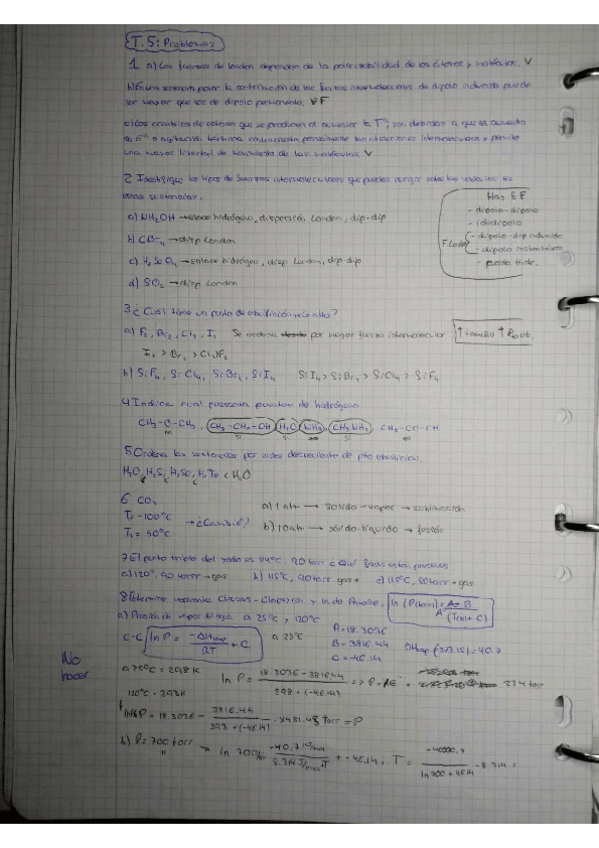 T.5: Problemas
1. a) Las fuerzas de london dependen de la polarizabilidad de los átomos y moléculas. V
b) En una sustancia polar la contribución de las fuerzas intermoleculares de dipolo inducido puede
ser mayor que las de dipolo permanente. V F
c) Los cambios de estado que se producen al aumentar la T°, son debidos a que el aumento
de E° o agitación térmica contrarresta parcialmente las atracciones intermoleculares y permite
una mayor libertad de movimiento de las moléculas V
2. Identifique los tipos de fuerzas intermoleculares que pueden surgir entre las moléculas de
estas sustancias.
a) NH2OH → enlace hidrógeno, dispersión London, dip-dip
b) CBr4 → disp London
c) H2SeO4 → enlace hidrógeno, disp London, dip dip
d) SO2 → disp London
Hay 5 F
- dipolo-dipolo
- ion-dipolo
F. London
- dipolo-dip inducido
- dipolo instantáneo
- puente Hidr.
3. ¿Cual tiene un punto de ebullición más alto?
a) F2, Br2, Cl2, I2 Se ordena por mayor fuerza intermolecular
↑ tamaño ↑ Pto eb.
I2 > Br2 > Cl2 > F2
b) SiF4, SiCl4, SiBr4, SiI4 SiI4 > SiBr4 > SiCl4 > SiF4
4. Indica cual presenta puentes de hidrógeno
CH3-O-CH3, CH3-CH2-OH, H2O, NH3, CH3NH2, CH3-CO-CH
no sí sí
5. Ordena las sustancias por orden decreciente de pto ebullición.
H2O, H2S, H2Se, H2Te < H2O
6. CO2
-100°C
T1 = 50°C
→ ¿Cambia?
a) 1 atm → sólido-vapor → sublimación
b) 10 atm → sólido-líquido → fusión
7. El punto triple del yodo es 114°C, 90 torr ¿Qué fases están presentes
a) 120°, 90 torr → gas b) 115°C, 90 torr gas + c) 115°C, 80 torr → gas
8. Determine mediante Clausius-Clapeyron y la de Antoine.
ln (P(torr)) = A - B / (T(K) + C)
a) Presión de vapor del agua a 25°C y 120°C
C-C ln P = -ΔHvap / RT + C
a 25°C
A = 18.3036
B = 3816.44
C = -46.14
ΔHvap (373.15) = 40.7
No
hacer
a 25°C = 298 K
ln P = 18.3036 - 3816.44 / 298 + (-46.14) => P = = 23.4 torr
120°C = 393 K
ln P = 18.3036 - 3816.44 / 393 + (-46.14) = 1481.48 torr = P
b) P = 700 torr → ln 700 = -40.7 / 8.314 J/mol·T + -46.14; T = -40000.7 / ln 700 + 46.14 - 8.314 =